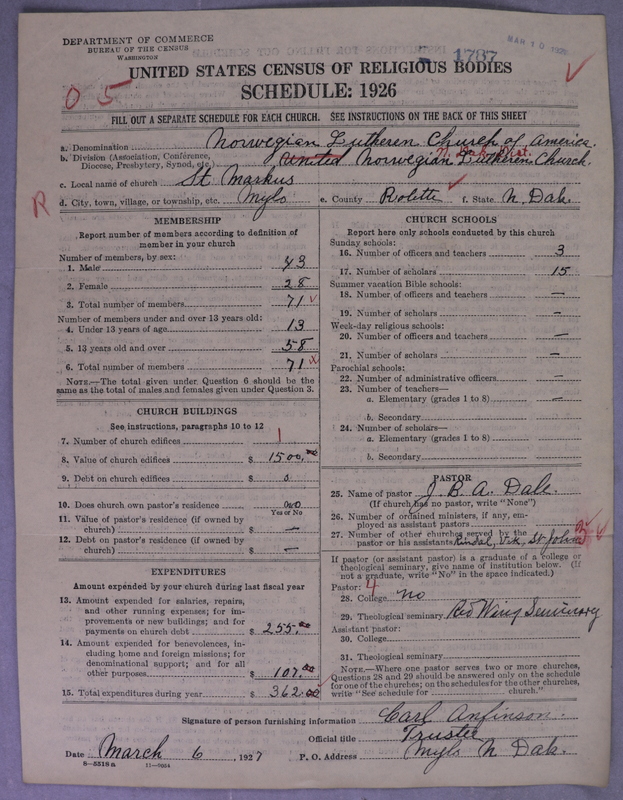 DEPARTMENT OF COMMERCE
BUREAU OF THE CENSUS
WASHINGTON
1787
MAR 10
UNITED STATES CENSUS OF RELIGIOUS BODIES
SCHEDULE: 1926
0 5
FILL OUT A SEPARATE SCHEDULE FOR EACH CHURCH. SEE INSTRUCTIONS ON THE BACK OF THIS SHEET
a. Denomination Norwegian Lutheren Church of America.
b. Division (Association, Conference, Diocese, Presbytery, Synod, etc.) United Norwegian Lutheren Church. N. Dak. Dist.
c. Local name of church St Markus
d. City, town, village, or township, etc. Mylo e. County Rolette f. State N. Dak.
R
MEMBERSHIP
Report number of members according to definition of
member in your church
Number of members, by sex:
1. Male 43
2. Female 28
3. Total number of members 71
Number of members under and over 13 years old:
4. Under 13 years of age 13
5. 13 years old and over 58
6. Total number of members 71
NOTE.—The total given under Question 6 should be the
same as the total of males and females given under Question 3.
CHURCH BUILDINGS
See instructions, paragraphs 10 to 12
7. Number of church edifices 1
8. Value of church edifices $ 1500.00
9. Debt on church edifices $ 0
10. Does church own pastor's residence no
Yes or No
11. Value of pastor's residence (if owned by
church) $ —
12. Debt on pastor's residence (if owned by
church) $ —
EXPENDITURES
Amount expended by your church during last fiscal year
13. Amount expended for salaries, repairs,
and other running expenses; for im-
provements or new buildings; and for
payments on church debt $ 255.00
14. Amount expended for benevolences, in-
cluding home and foreign missions; for
denominational support; and for all
other purposes $ 107.00
15. Total expenditures during year $ 362.00
CHURCH SCHOOLS
Report here only schools conducted by this church
Sunday schools:
16. Number of officers and teachers 3
17. Number of scholars 15
Summer vacation Bible schools:
18. Number of officers and teachers —
19. Number of scholars —
Week-day religious schools:
20. Number of officers and teachers —
21. Number of scholars —
Parochial schools:
22. Number of administrative officers —
23. Number of teachers—
a. Elementary (grades 1 to 8) —
b. Secondary
24. Number of scholars—
a. Elementary (grades 1 to 8)
b. Secondary
PASTOR
25. Name of pastor J. B. A. Dale.
(If church has no pastor, write "None")
26. Number of ordained ministers, if any, em-
ployed as assistant pastors
27. Number of other churches served by the
pastor or his assistants Rindal, Vik, St Johns
If pastor (or assistant pastor) is a graduate of a college or
theological seminary, give name of institution below. (If
not a graduate, write "No" in the space indicated.)
Pastor: 4
28. College no
29. Theological seminary Red Wing Seminary
Assistant pastor:
30. College
31. Theological seminary
NOTE.—Where one pastor serves two or more churches,
Questions 28 and 29 should be answered only on the schedule
for one of the churches; on the schedules for the other churches,
write "See schedule for church."
Signature of person furnishing information Carl Anfinson.
Official title Trustee
Date March 6, 1927 P. O. Address Mylo N Dak.
8—5518a 11—9054